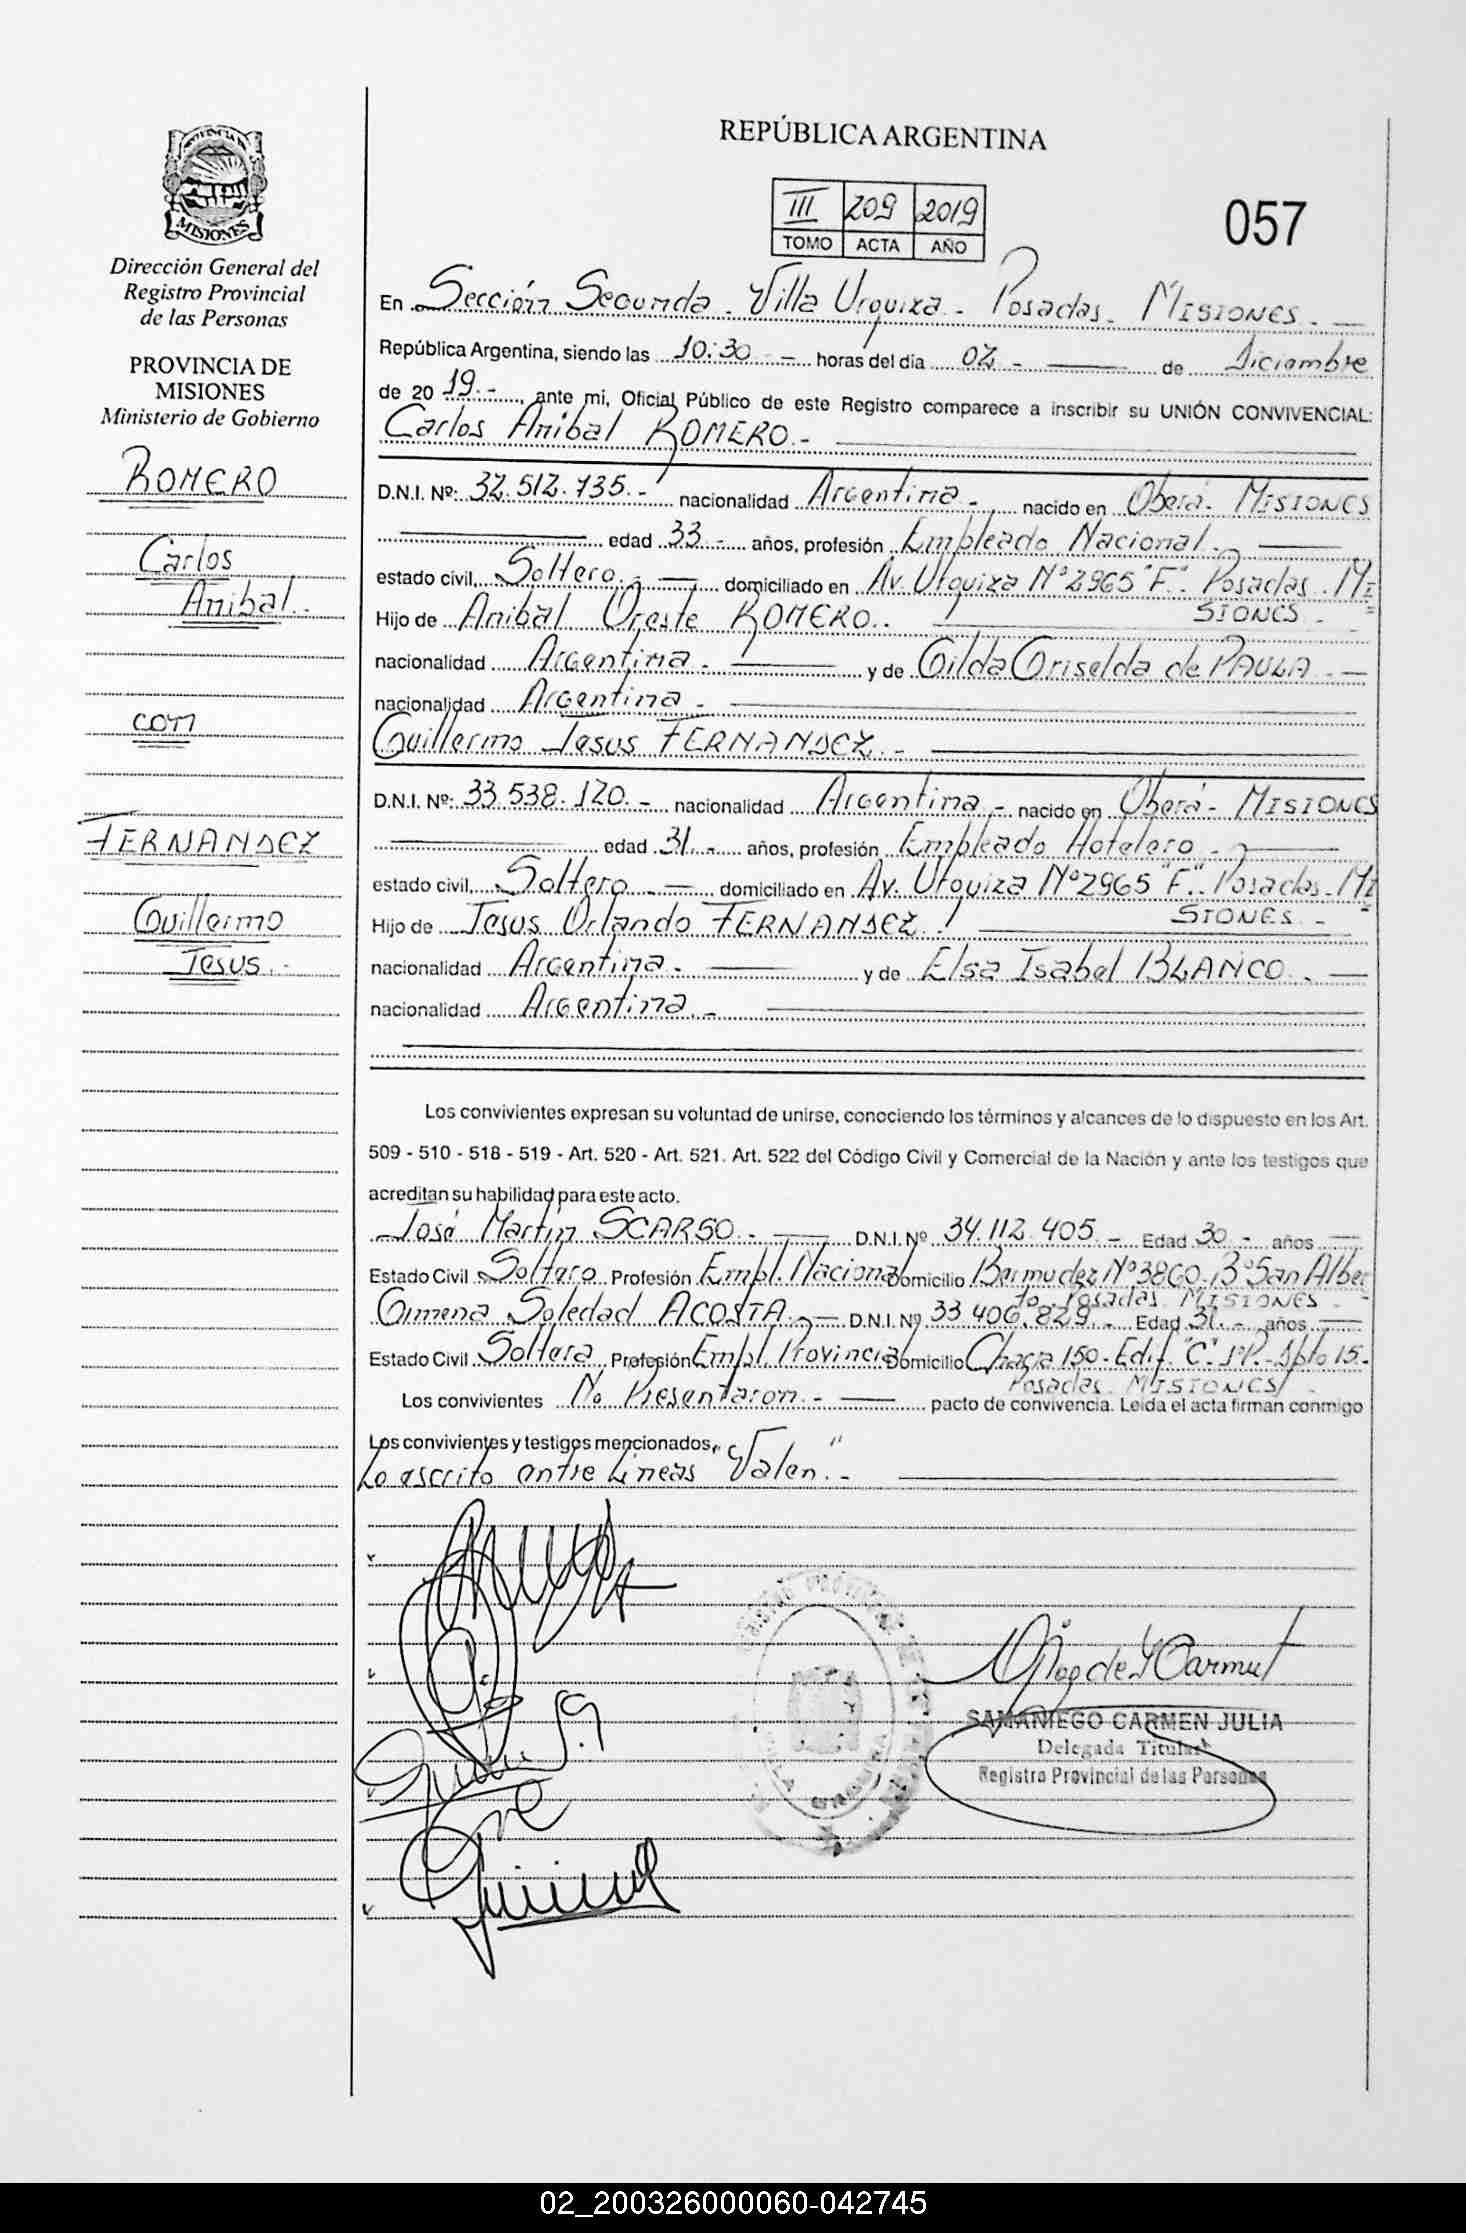 REPÚBLICA ARGENTINA
PROVINCIA DE
MISIONES
Dirección General del
Registro Provincial
de las Personas
PROVINCIA DE
MISIONES
Ministerio de Gobierno
ROMERO
Carlos
Anibal.-
con
FERNANDEZ
Guillermo
Jesus.-
III 209 2019
TOMO ACTA AÑO
057
En Sección Segunda - Villa Urquiza - Posadas - MISIONES.-
República Argentina, siendo las 10:30 - horas del día 02 - de Diciembre
de 20 19.-, ante mi, Oficial Público de este Registro comparece a inscribir su UNIÓN CONVIVENCIAL:
Carlos Anibal ROMERO.-
D.N.I. Nº: 32.512.735.- nacionalidad Argentina - nacido en Oberá - MISIONES
edad 33 - años, profesión Empleado Nacional.-
estado civil, Soltero.- domiciliado en Av. Urquiza Nº 2965 "F". Posadas - MI
SIONES -
Hijo de Anibal Oreste ROMERO.-
nacionalidad Argentina - y de Gilda Griselda de PAULA -
nacionalidad Argentina -
Guillermo Jesus FERNANDEZ.-
D.N.I. Nº: 33.538.120.- nacionalidad Argentina - nacido en Oberá - MISIONES
edad 31.- años, profesión Empleado Hotelero -
estado civil, Soltero - domiciliado en Av. Urquiza Nº 2965 "F". Posadas - MI
SIONES -
Hijo de Jesus Orlando FERNANDEZ.
nacionalidad Argentina - y de Elsa Isabel BLANCO.-
nacionalidad Argentina.-
Los convivientes expresan su voluntad de unirse, conociendo los términos y alcances de lo dispuesto en los Art.
509 - 510 - 518 - 519 - Art. 520 - Art. 521. Art. 522 del Código Civil y Comercial de la Nación y ante los testigos que
acreditan su habilidad para este acto.
José Martín SCARSO.- D.N.I. Nº 34.112.405.- Edad 30 - años
Estado Civil Soltero Profesión Empl. Nacional Domicilio Bermudez Nº 3860 - Bº San Alber
to - Posadas - MISIONES -
Gimena Soledad ACOSTA - D.N.I. Nº 33.406.829.- Edad 31.- años
Estado Civil Soltera Profesión Empl. Provincial Domicilio Chacra 150 - Edif. "C". 1º P. - Dpto 15.
Posadas - MISIONES -
Los convivientes No Presentaron.- pacto de convivencia. Leída el acta firman conmigo
Los convivientes y testigos mencionados,
Lo escrito entre lineas "Valen".-
SAMANIEGO CARMEN JULIA
Delegada Titular
Registro Provincial de las Personas
02_200326000060-042745